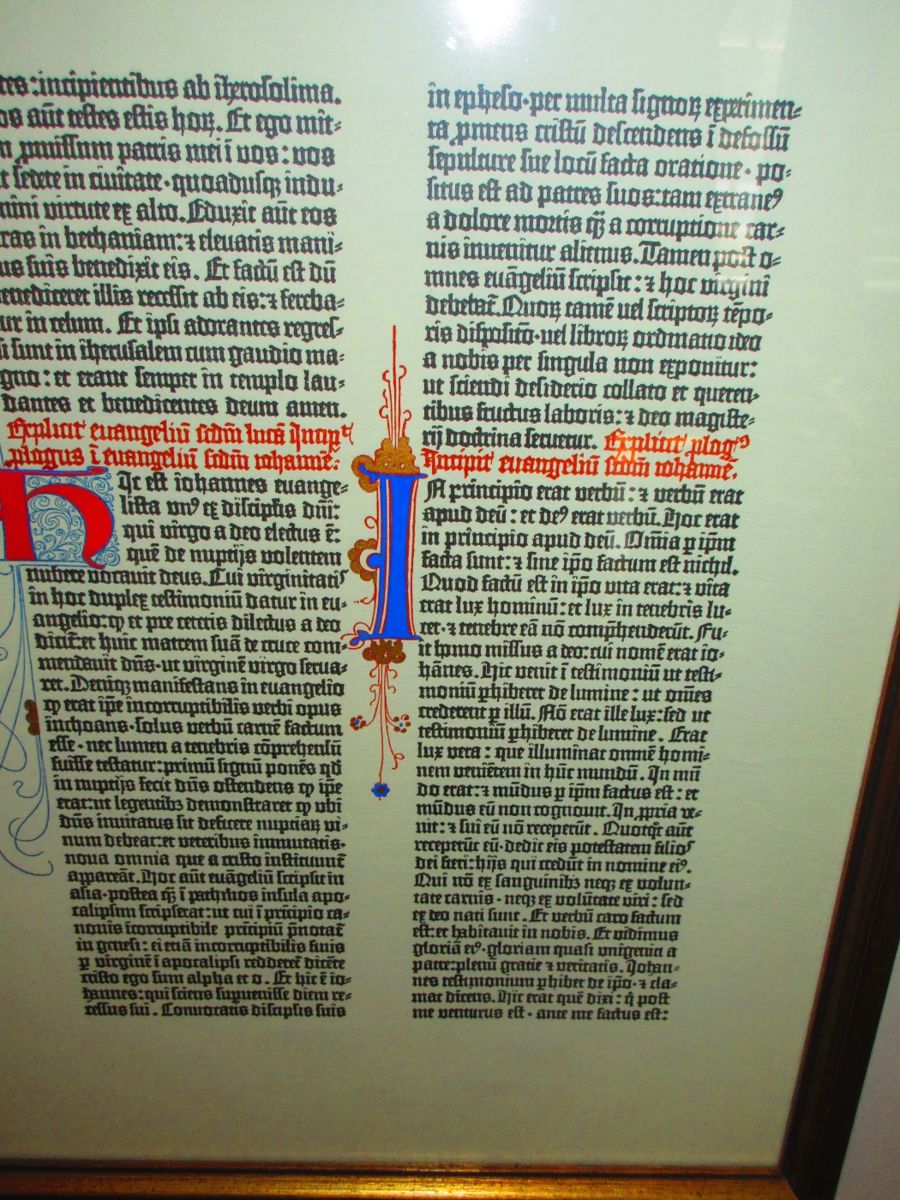 tes: incipientibus ab iherosolima.
os aūt testes estis hoꝝ. Et ego mit-
n ꝓmissum patris mei ī vos: vos
t sedete in civitate · quoadusqꝫ indu-
mini virtute ex alto. Eduxit aūt eos
ras in bethaniam: ⁊ elevatis mani-
us suis benedixit eis. Et factū est dū
benediceret illis recessit ab eis: ⁊ fereba-
ur in celum. Et ipsi adorantes regres-
si sunt in iherusalem cum gaudio ma-
gno: et erant semper in templo lau-
dantes et benedicentes deum amen.
Explicit euangeliū scdm lucā Incipit
ꝓlogus ī euangeliū scdm iohannē:
Hic est iohannes euange-
lista vnꝰ ex disciplis dnī:
qui virgo a deo electus ē:
quē de nuptijs volentem
nubere vocauit deus. Cui virginitatis
in hoc duplex testimoniū datur in eu-
angelio: ꝙ et pre ceteris dilectus a deo
dicit: et huic matrem suā de cruce com-
mendauit dn̄s · ut virginē virgo serua-
ret. Deniqꝫ manifestans in euangelio
ꝙ erat ip̄e incorruptibilis verbi opus
inchoans · solus verbū carnē factum
esse · nec lumen a tenebris cōprehensū
fuisse testatur: primū signū ponēs qd̄
in nuptijs fecit dn̄s ostendens ꝙ ip̄e
erat: ut legentibꝫ demonstraret ꝙ vbi
dn̄s inuitatus sit deficere nuptiaꝝ vi-
num debeat: et veteribus immutatis ·
noua omnia que a cristo instituunt̄
appareāt. Hoc aūt euāgeliū scripsit in
asia · postea ꝙ̄ ī pathmos insula apo-
calipsim scripserat: ut cui ī prīcipio ca-
nonis īcorruptibile prīcipiū p̄notat̄
in genesi: ei etiā incorruptibilis finis
ꝑ virginē ī apocalipsi redderet̄ dicēte
cristo ego sum alpha et o. Et hic ē io-
hannes: qui sciens supuenisse diem re-
cessus sui. Conuocatis discipulis suis
in epheso · per multa signoꝝ experimen-
ta ꝓmens cristū descendens ī defossū
sepulture sue locū facta oratione · po-
situs est ad patres suos: tam extraneꝰ
a dolore mortis ꝙ̄ a corruptione car-
nis inuenitur alienus. Tamen post o-
mnes euāgeliū scripsit: ⁊ hoc virgini
debebat̄. Quoꝝ tamē vel scriptoꝝ tēpo-
ris dispositō · vel libroꝝ ordinatio ideo
a nobis per singula non exponitur:
ut sciendi desiderio collato et queren-
tibus fructus laboris: ⁊ deo magiste-
rij doctrina seruetur. Explicit ꝓlogꝰ
Incipit euangeliū scdm iohannē.
IN principio erat verbū: ⁊ verbū erat
apud deū: et deꝰ erat verbū. Hoc erat
in principio apud deū. Om̄ia ꝑ ip̄m
facta sunt: ⁊ sine ip̄o factum est nichil.
Quod factū est in ip̄o vita erat: ⁊ vita
erat lux hominū: et lux in tenebris lu-
cet · ⁊ tenebre eā nō comp̄henderūt. Fu-
it homo missus a deo: cui nomē erat io-
hānes. Hic venit ī testimoniū ut testi-
moniū ꝑhiberet de lumine: ut om̄es
crederent ꝑ illū. Nō erat ille lux: sed ut
testimoniū ꝑhiberet de lumine. Erat
lux vera: que illuminat omnē homi-
nem veniētem in hūc mundū. In mū-
do erat: ⁊ mūdus ꝑ ip̄m factus est: et
mūdus eū non cognouit. In ꝓpria ve-
nit: ⁊ sui eū nō receperūt. Quotqt̄ aūt
receperūt eū · dedit eis potestatem filios
dei fieri: hijs qui credūt in nomine eiꝰ.
Qui nō ex sanguinibꝫ neqꝫ ex volun-
tate carnis · neqꝫ ex volūtate viri: sed
ex deo nati sunt. Et verbū caro factum
est: et habitauit in nobis. Et vidimus
gloriā eiꝰ · gloriam quasi vnigeniti a
patre: plenū gratie ⁊ veritatis. Johan-
nes testimonium ꝑhibet de ip̄o · ⁊ cla-
mat dicens. Hic erat quē dixi: q̄ post
me venturus est · ante me factus est: